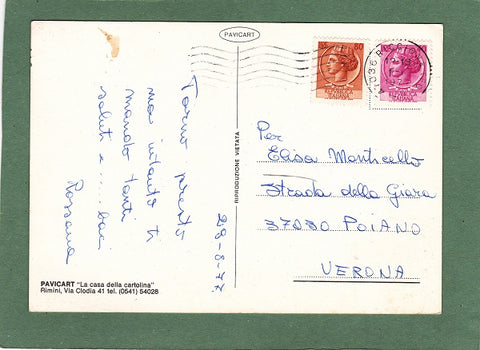 PAVICART
Torno presto
ma intanto ti
mando tanti
saluti e ... baci
Rossana
28-6-77
RIPRODUZIONE VIETATA
80
Per
Elisa Monticello
Strada della Giara
37030 POIANO
VERONA
PAVICART "La casa della cartolina"
Rimini, Via Clodia 41 tel. (0541) 54028